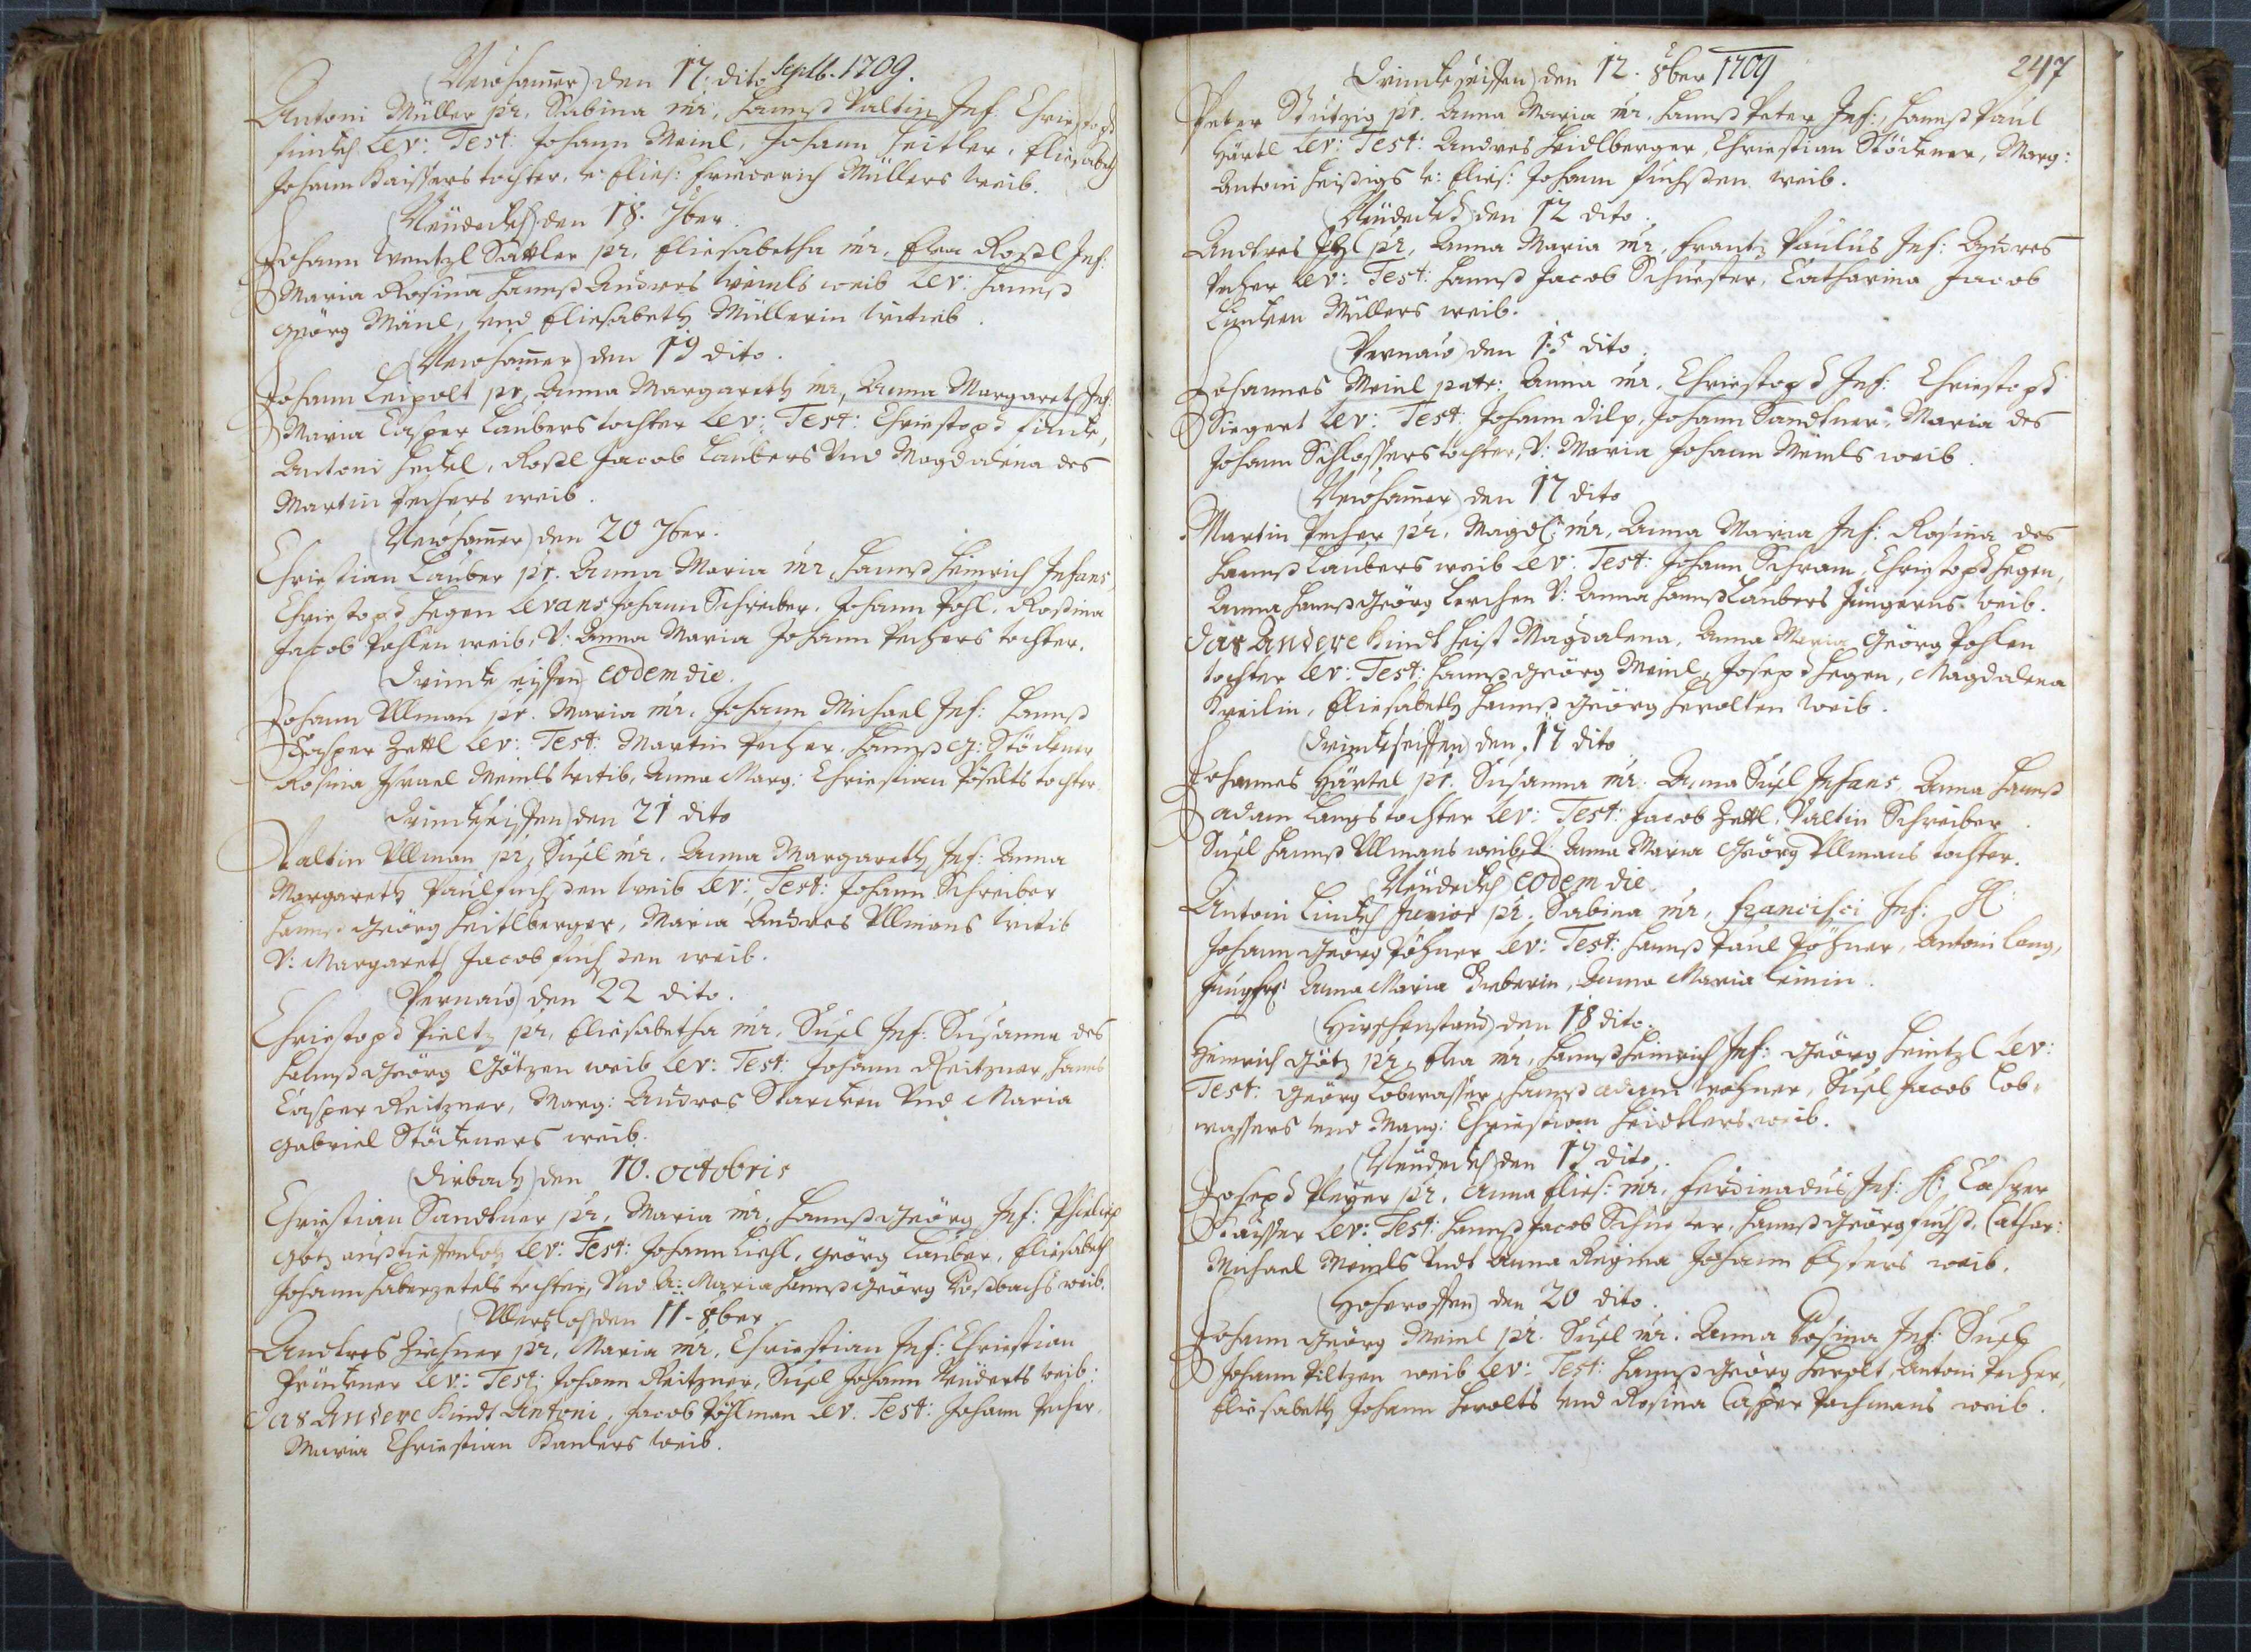 (Neuhamer) den 17. dito Septb. 1709.
Antoni Müller pr, Sabina mr, Hannß Valtin Inf: Christoph
Lev: Test: Johann Meinl, Johann Heitler, Eliesabeth
Johann Kaißers tochter, v: Elies: Friederich Müllers weib.
(Neüdeckh) den 18. 7ber.
Johann Wentzl Sattler pr, Eliesabetha mr, Eva Rosl Inf:
Maria Rosina Hannß Andres Meinls weib Lev: Hannß
Georg Mänl, vnd Eliesabeth Müllerin witieb.
(Neuhamer) den 19 dito.
Johann Leipolt pr, Anna Margareth mr, Anna Margareth Inf:
Maria Casper Laubers tochter Lev: Test: Christoph
Antoni Heckel, Rosl Jacob Laubers Vnd Magdalena des
Martin Pechers weib.
(Neuhamer) den 20 7ber.
Christian Lauber pr. Anna Maria mr, Hannß Heinrich Infans,
Christoph Hegen Levans Johann Schreiber, Johann Pohl, Rosina
Jacob Pohlen weib, V: Anna Maria Johann Pechers tochter.
(Drinckseissen) eodem die.
Johann Ullman pr. Maria mr, Johann Michael Inf: Hannß
Casper Zettl Lev: Test: Martin Pecher, Hannß G: Stöckner
Rosina Israel Meinls witib, Anna Marg: Christian Pöselts tochter.
(Drinckseissen) den 21 dito
Valtin Ullman pr, Susl mr, Anna Margareth Inf: Anna
Margareth Paul Fuchßen weib Lev: Test: Johann Schreiber
Hannß Georg Heitlberger, Maria Andres Ullmans witib
V: Margareth Jacob Fuchßen weib.
(Pernau) den 22 dito.
Christoph Pieltz pr, Eliesabetha mr, Susl Inf: Susanna des
Hannß Georg Götzen weib Lev: Test: Johann Reitzner, Hannß
Casper Reitzner, Marg: Andres Starcken Vnd Maria
Gabriel Stöckners weib.
(Dirbach) den 10. octobris
Christian Sandtner pr, Maria mr, Hannß Georg Inf: Phielip
Götz auß Lev: Test: Johann Liehl, Georg Lauber, Eliesabeth
Johann Haberzetels tochter, Vnd A: Maria Hannß Georg Roßbachs weib.
(Ullersloh) den 11. 8ber.
Andres Zuchner pr, Maria mr, Christian Inf: Christian
Lev: Test: Johann Reitzner, Susl Johann Neüderts weib:
das Andere Kindt Antoni, Jacob Pöhlman Lev. Test: Johann Pecher,
Maria Christian weib.

247
(Drinckseissen) den 12. 8ber 1709
Peter Stutzig pr. Anna Maria mr, Hannß Peter Inf:, Hannß Paul
Härtl Lev: Test: Andres Heidlberger, Christian Stöckner, Marg:
Antoni v: Elies: Johann Fuchßen weib.
(Neüdeckh) den 12 dito.
Andres pr, Anna Maria mr, Frantz Paulus Inf: Andres
Pecher Lev: Test: Hannß Jacob Schuster, Catharina Jacob
Müllers weib.
(Pernau) den 15 dito.
Johannes Meinl patr: Anna mr, Christoph Inf: Christoph
Siegert Lev: Test: Johann Dilp, Johann Sandtner, Maria des
Johann Schlossers tochter, V: Maria Johann Meinls weib.
(Neuhamer) den 17 dito
Martin Pecher pr, Magdl: mr, Anna Maria Inf: Rosina des
Hannß Laubers weib Lev: Test: Johann Schram, Christoph Hegen,
Anna Hannß Georg Lerchen V: Anna Hannß Laubers Jüngerns weib.
das Andere Kindt heist Magdalena, Anna Maria Georg Pohlen
tochter Lev: Test: Hannß Georg Meinl, Joseph Hegen, Magdalena
Eliesabeth Hannß Georg Herolten weib.
(Drinckseissen) den 17 dito
Johannes Härtel pr. Susanna mr. Anna Susl Infans, Anna Hannß
Adam Langs tochter Lev: Test: Jacob Zettl, Valtin Schreiber
Susl Hannß Ullmans weib, V: Anna Maria Georg Ullmans tochter.
(Neüdeckh) eodem die.
Antoni Junior pr. Sabina mr, Francisci Inf: H:
Johann Georg Pöhner Lev: Test: Hannß Paul Pöhner, Antoni Lang,
Jungfr: Anna Maria Anna Maria
(Hirschenstand) den 18 dito.
Heinrich Götz pr, Eva mr, Hannß Heinrich Inf: Georg Heintzl Lev:
Test: Georg Lobwasser, Hannß Adam Susl Jacob Lob-
wassers vnd Marg: Christian Heidtlers weib.
(Neüdeckh) den 19 dito.
Joseph Pleyer pr. Anna Elies: mr, Ferdinadus Inf: H: Casper
Kaisser Lev: Test: Hannß Jacob Schuster, Hannß Georg Fuchß, Cathar:
Michael Meinls Vndt Anna Regina Johann weib.
(Hohoroffen) den 20 dito.
Johann Georg Meinl pr. Susl mr. Anna Rosina Inf: Susl
Johann Piltzen weib Lev: Test: Hannß Georg Herolt, Antoni Pecher,
Eliesabeth Johann Herolts vnd Rosina Casper Pachmans weib.